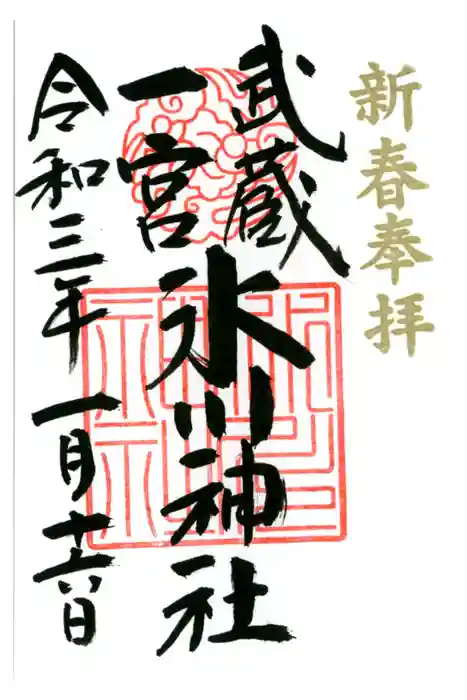 新春奉拝
武蔵
一宮
氷川神社
令和三年一月十六日